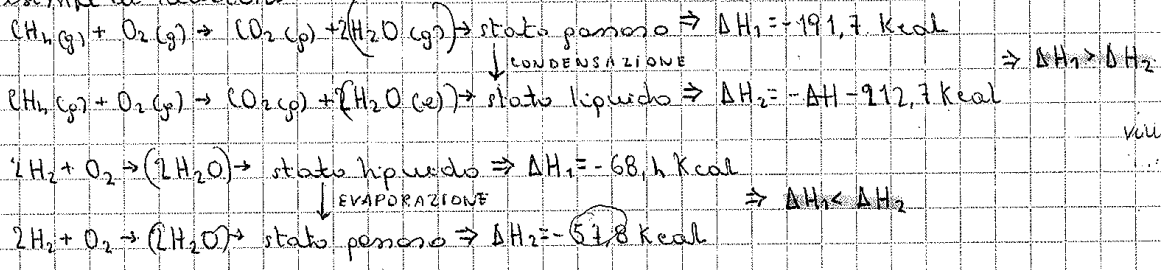 esempi di reazioni
CH₄(g) + O₂(g) → CO₂(g) + 2(H₂O(g)) → stato gassoso ⇒ ΔH₁ = -191,7 Kcal
↓ CONDENSAZIONE ⇒ ΔH₁ > ΔH₂
CH₄(g) + O₂(g) → CO₂(g) + 2(H₂O(e)) → stato liquido ⇒ ΔH₂ = -ΔH - 212,7 Kcal
2H₂ + O₂ → (2H₂O) → stato liquido ⇒ ΔH₁ = -68,4 Kcal
↓ EVAPORAZIONE ⇒ ΔH₁ < ΔH₂
2H₂ + O₂ → (2H₂O) → stato gassoso ⇒ ΔH₂ = -57,8 Kcal